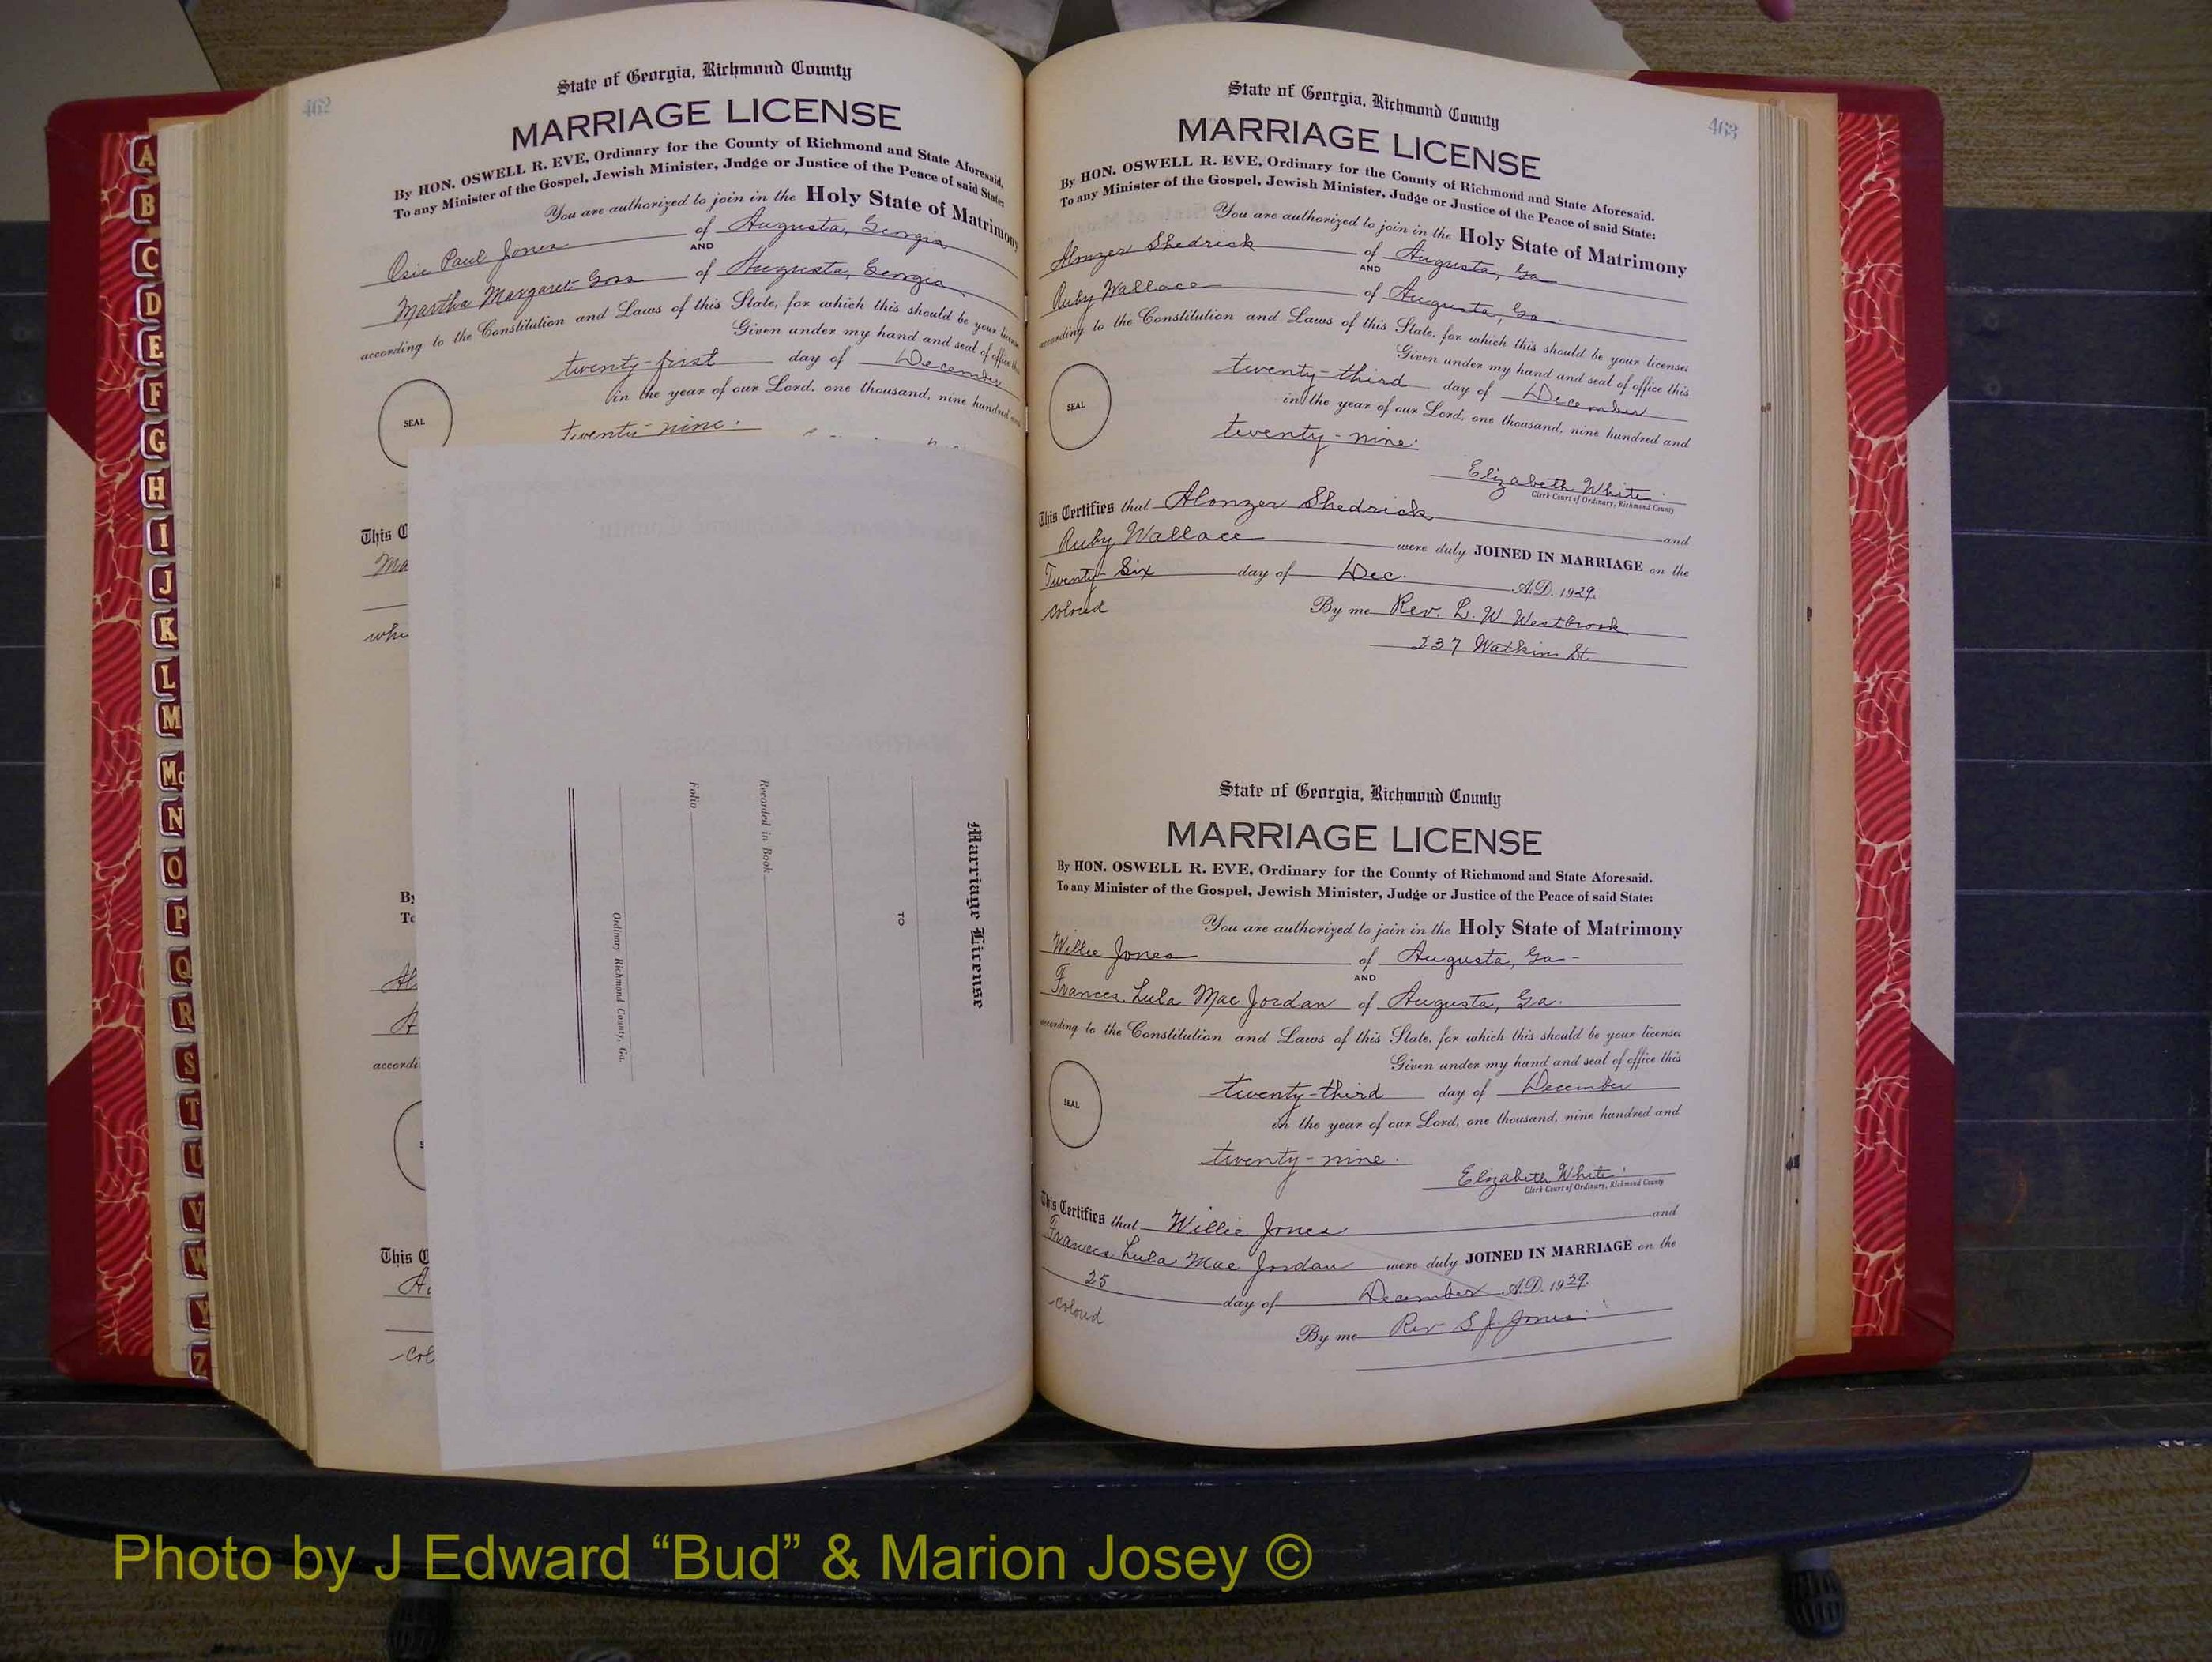 462
State of Georgia, Richmond County
MARRIAGE LICENSE
By HON. OSWELL R. EVE, Ordinary for the County of Richmond and State Aforesaid.
To any Minister of the Gospel, Jewish Minister, Judge or Justice of the Peace of said State:
You are authorized to join in the Holy State of Matrimony
Paul Jones of Augusta, Georgia
AND
Martha Margaret Goss of Augusta, Georgia
according to the Constitution and Laws of this State, for which this should be your license
Given under my hand and seal of office this
twenty-first day of December
in the year of our Lord, one thousand, nine hundred and
SEAL
twenty-nine.
This C
Ma
whi
By
To
Al
A
accordi
This C
A
Col
Marriage License
TO
Recorded in Book
Folio
Ordinary Richmond County, Ga.
A
B
C
D
E
F
G
H
I
J
K
L
M
Mc
N
O
P
Q
R
S
T
U
V
W
Y
Z
463
State of Georgia, Richmond County
MARRIAGE LICENSE
By HON. OSWELL R. EVE, Ordinary for the County of Richmond and State Aforesaid.
To any Minister of the Gospel, Jewish Minister, Judge or Justice of the Peace of said State:
You are authorized to join in the Holy State of Matrimony
Alonzer Shedrick of Augusta, Ga
AND
Ruby Wallace of Augusta, Ga.
according to the Constitution and Laws of this State, for which this should be your license:
Given under my hand and seal of office this
twenty-third day of December
in the year of our Lord, one thousand, nine hundred and
SEAL
twenty-nine.
Elizabeth White.
Clerk Court of Ordinary, Richmond County
This Certifies that Alonzer Shedrick
and
Ruby Wallace were duly JOINED IN MARRIAGE on the
Twenty-Six day of Dec. A.D. 1929.
Colored
By me Rev. L. W. Westbrook
237 Watkins St
State of Georgia, Richmond County
MARRIAGE LICENSE
By HON. OSWELL R. EVE, Ordinary for the County of Richmond and State Aforesaid.
To any Minister of the Gospel, Jewish Minister, Judge or Justice of the Peace of said State:
You are authorized to join in the Holy State of Matrimony
Willie Jones of Augusta, Ga-
AND
Frances Lula Mae Jordan of Augusta, Ga.
according to the Constitution and Laws of this State, for which this should be your license:
Given under my hand and seal of office this
twenty-third day of December
in the year of our Lord, one thousand, nine hundred and
SEAL
twenty-nine.
Elizabeth White
Clerk Court of Ordinary, Richmond County
This Certifies that Willie Jones and
Frances Lula Mae Jordan were duly JOINED IN MARRIAGE on the
25 day of December A.D. 1929.
Colored
By me Rev S. J. Jones
Photo by J Edward “Bud” & Marion Josey ©